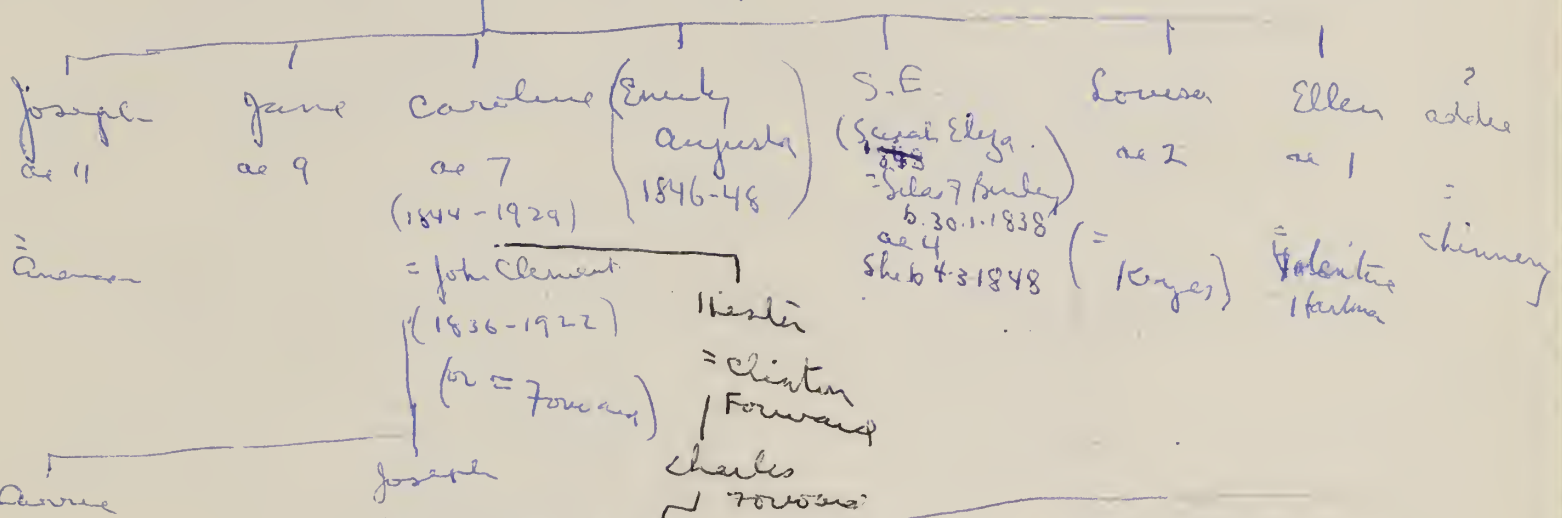 Joseph
ae 11
=
Jane
ae 9
Caroline
ae 7
(1844-1929)
= John Clement
(1836-1922)
(or = Forward)
(Emily
Augusta
1846-48)
S.E.
(Sarah Eliza)
= Silas F
b. 30.1.1838
ae 4
She b 4.3.1848
Louisa
ae 2
(=
Keyes)
Ellen
ae 1
=
Valentine
?
Addie
=
Chinnery
Hester
= Clinton
Forward
Charles
Forward
Carrie
Joseph